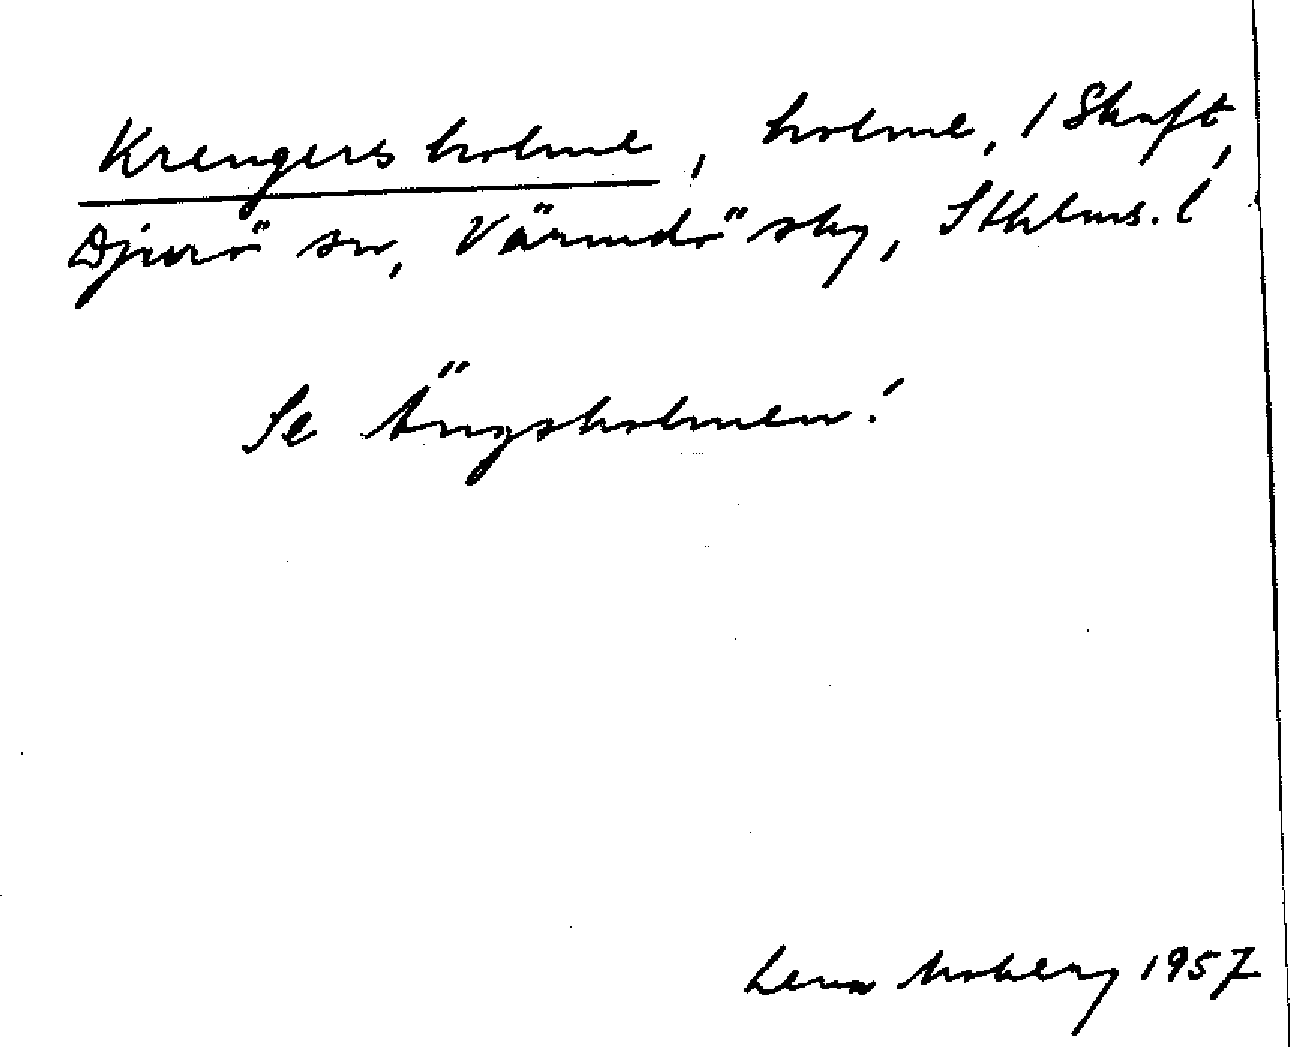 Krengersholme, holme, 1 Skuft,
Djurö sn, Värmdö sky, Sthlms. l
Se Ängsholmen!
Lena Moberg 1957